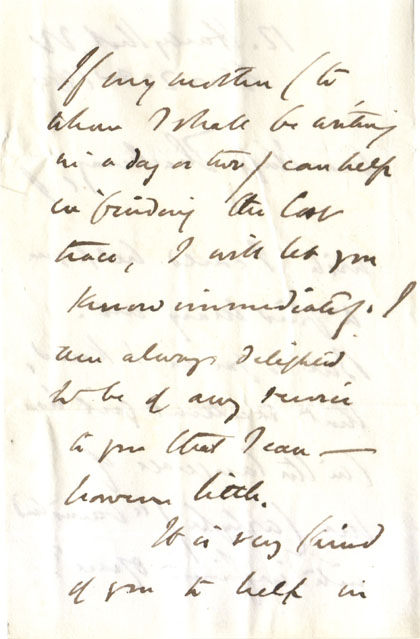 If my mother (to
whom I shall be writing
in a day or two) can help
in finding the lost
trace, I will let you
know immediately. I
am always delighted
to be of any service
to you that I can —
however little.
It is very kind
of you to help in